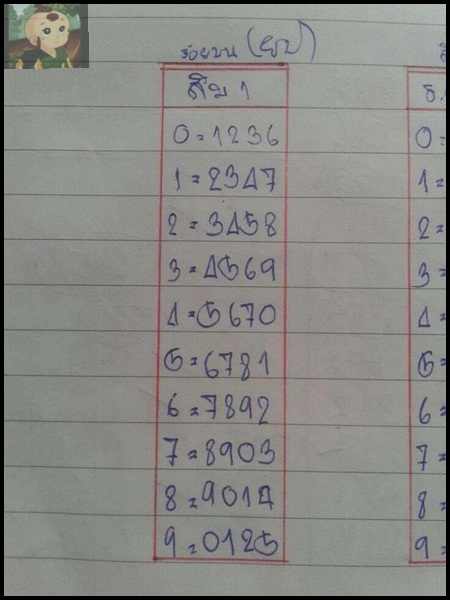 ร้อยบน (ยป)
สิบ 1
0=1236
1=2347
2=3458
3=4569
4=5670
5=6781
6=7892
7=8903
8=9014
9=0125
0=
1=
2=
3=
4=
5=
6=
7=
8=
9=